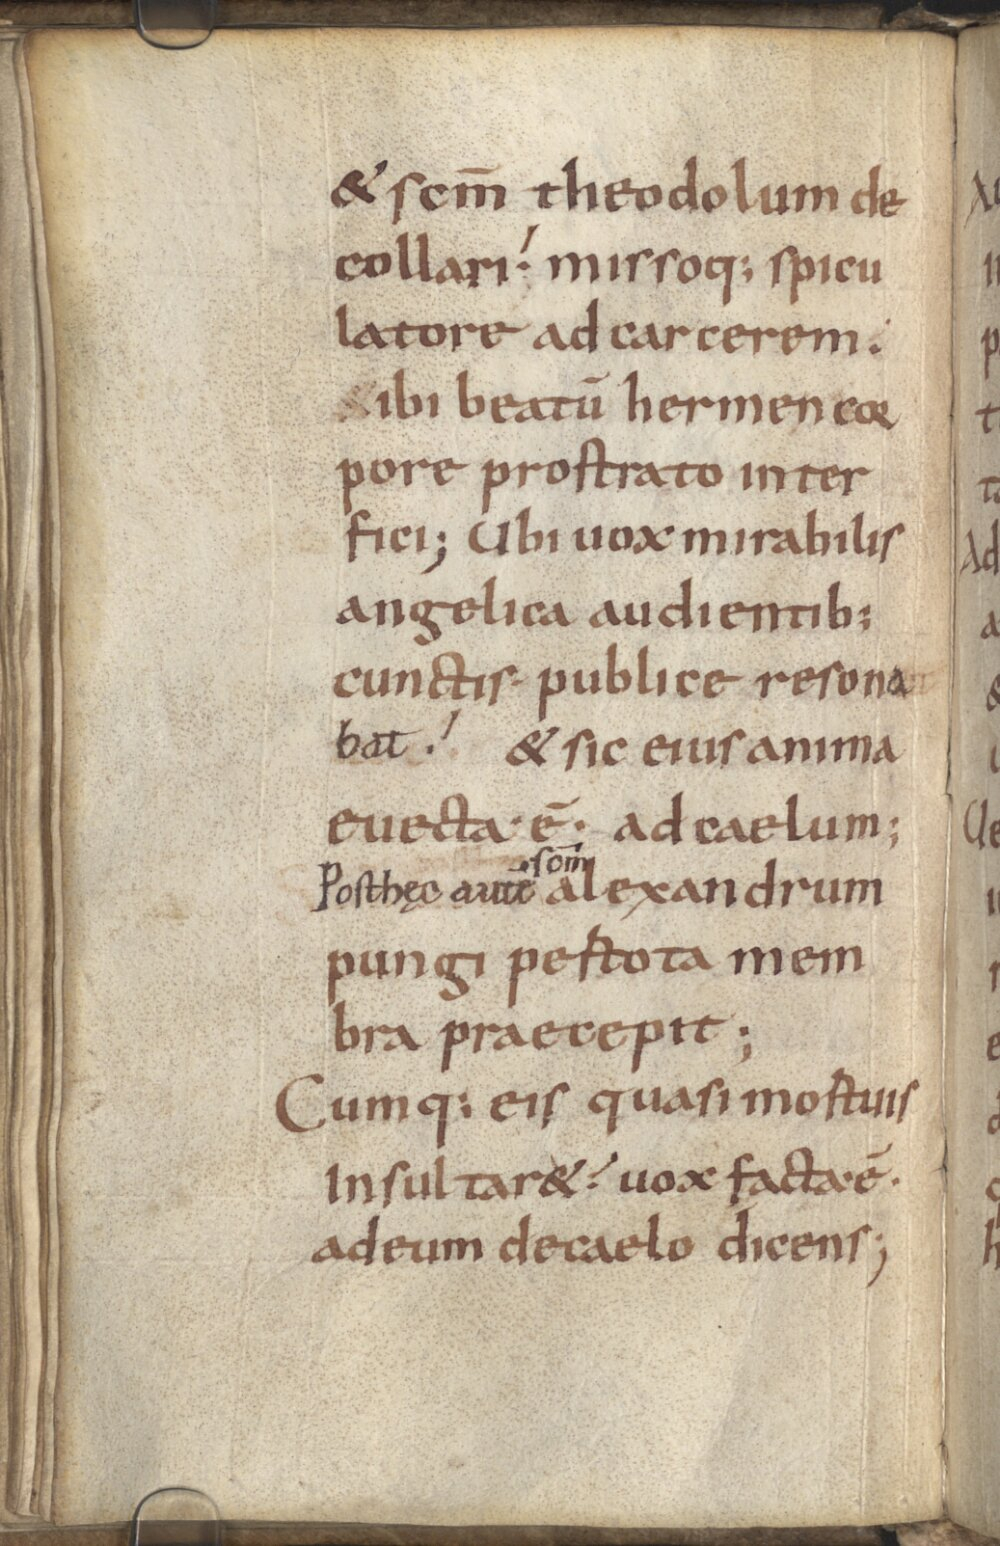 & scm̄ theodolum de
collari. missoq; spicu
latore ad carcerem.
ibi beatū hermen cor
pore prostrato inter
fici; Ubi uox mirabilis
angelica audientib;
cunctis. publice resona
bat. & sic eius anima
euecta. ē. ad caelum;
Posthęc autē scm̄ alexandrum
pungi per tota mem
bra praecepit;
Cumq; eis quasi mortuis
Insultar&. uox facta. ē.
adeum decaelo dicens;